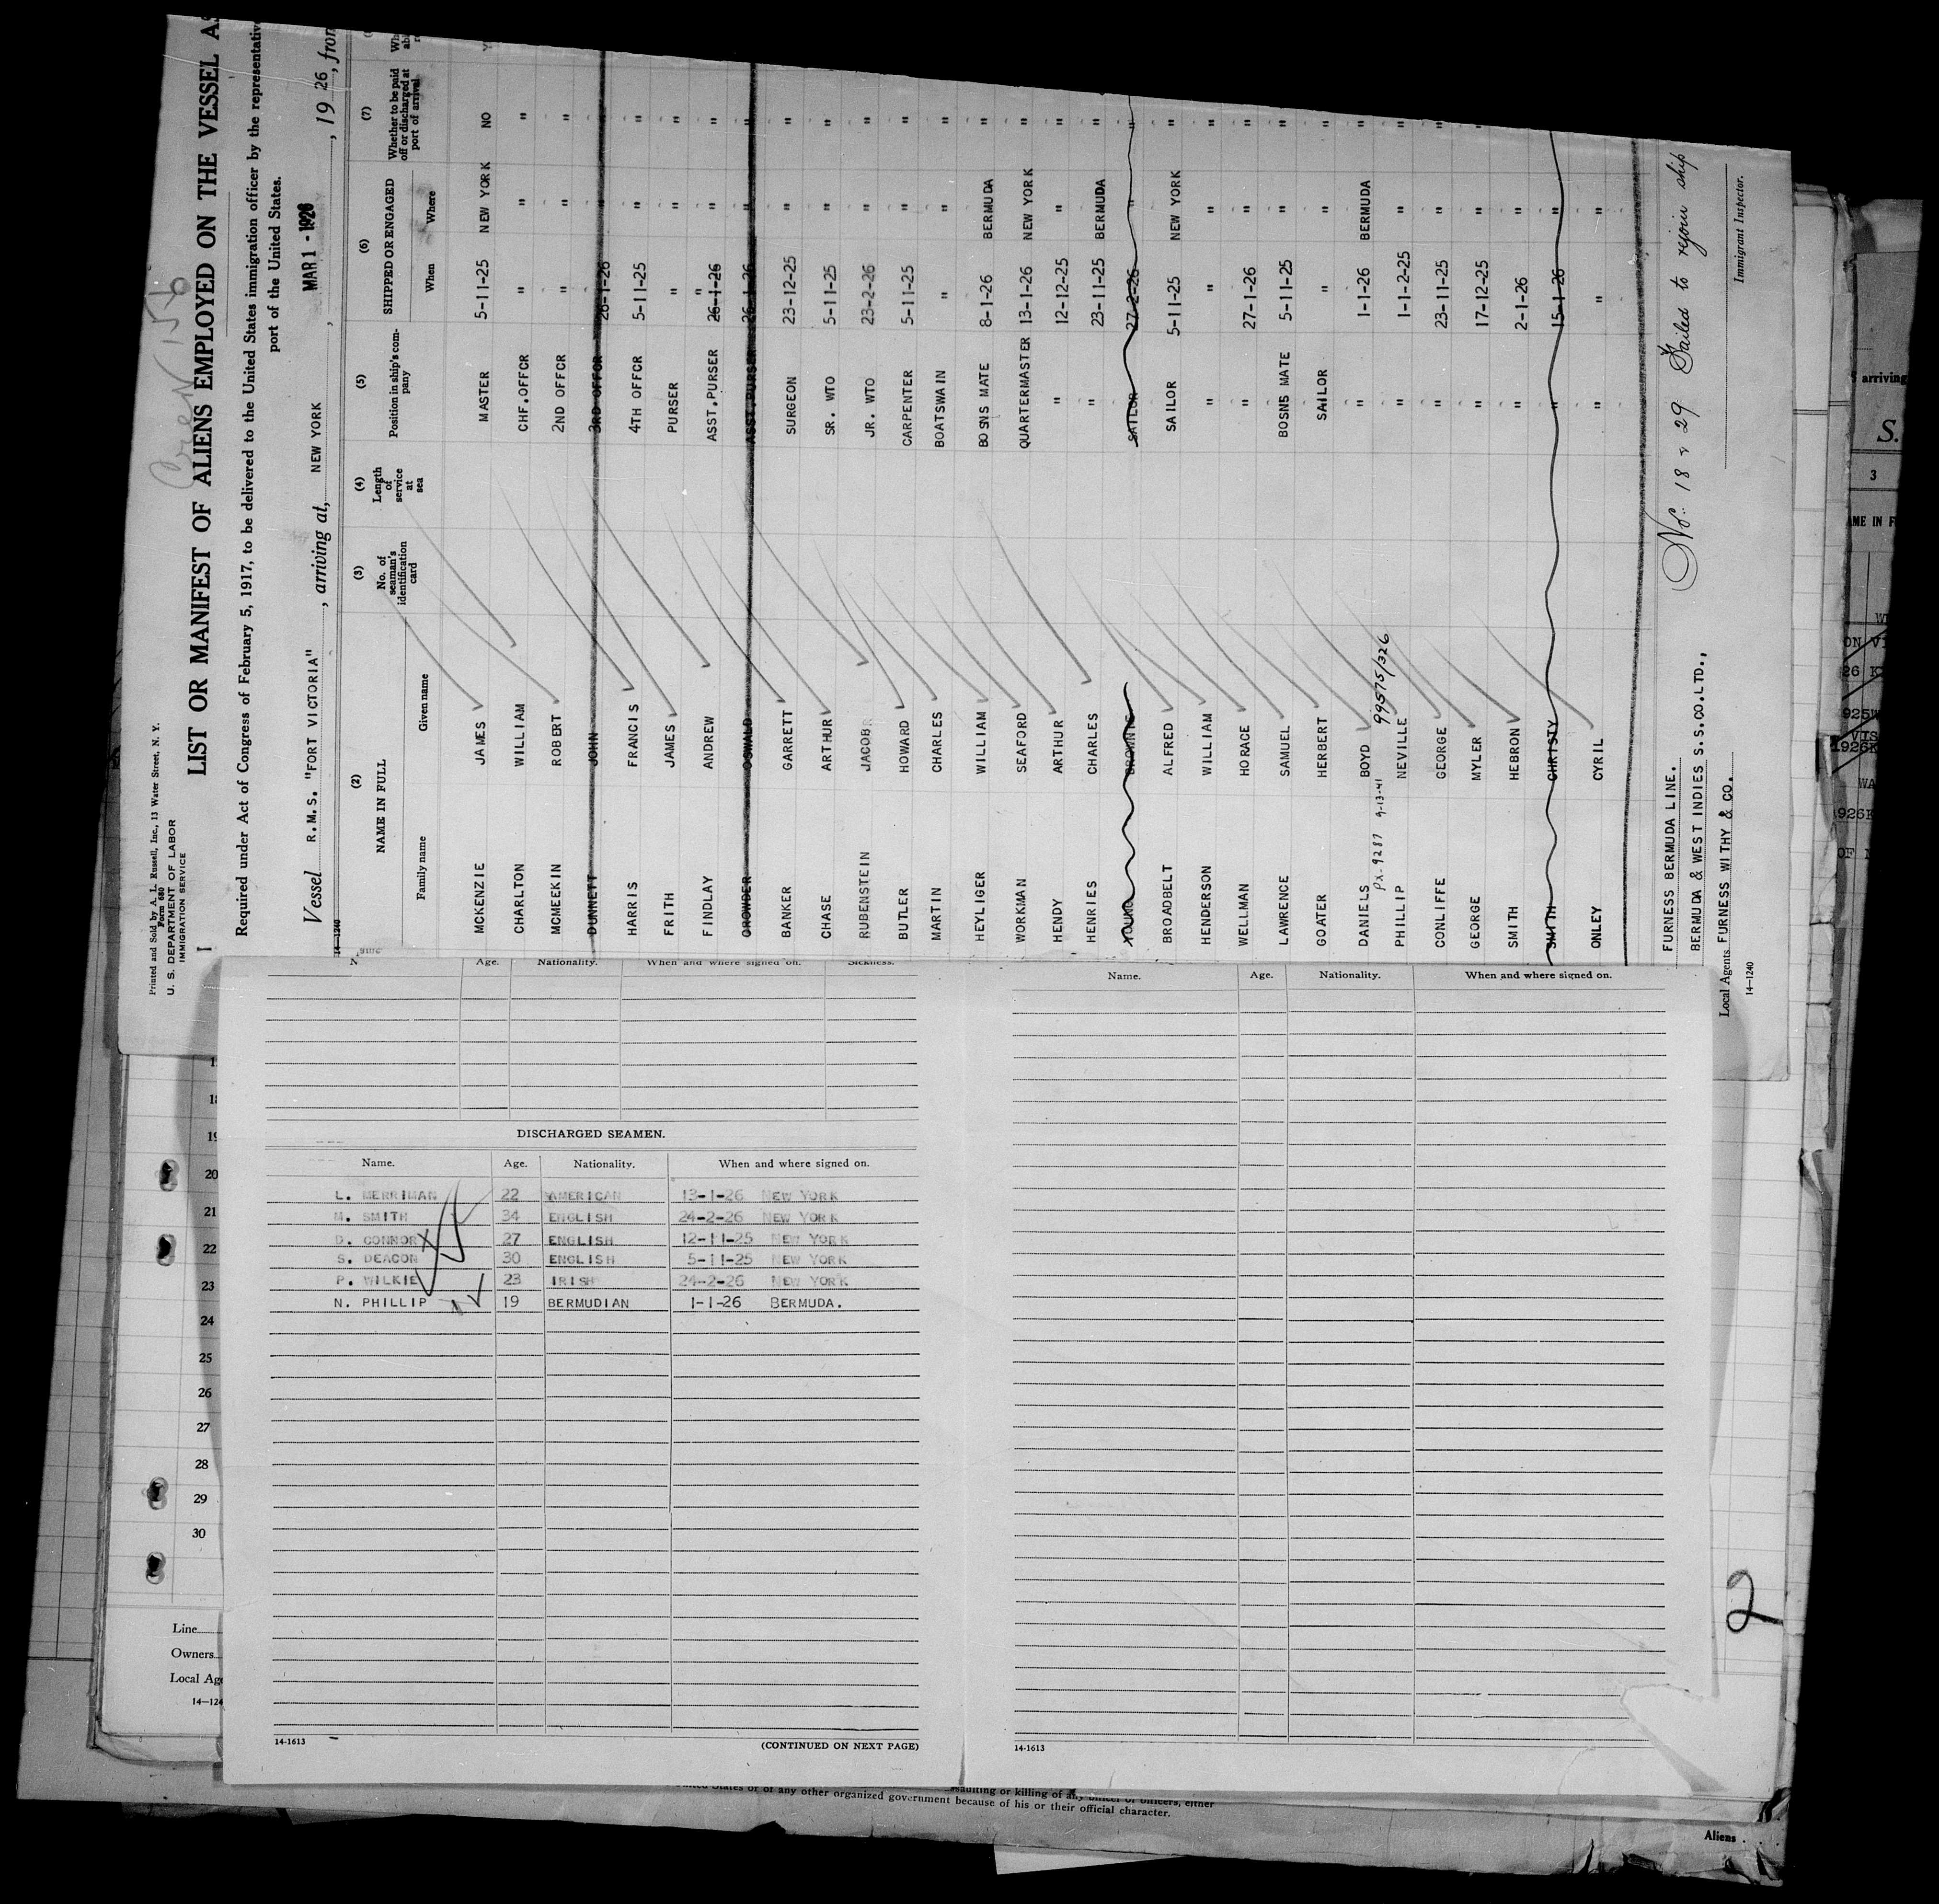 Crew 156
Printed and Sold by A. L. Russell, Inc., 13 Water Street, N. Y.
Form 680
U. S. DEPARTMENT OF LABOR
IMMIGRATION SERVICE
LIST OR MANIFEST OF ALIENS EMPLOYED ON THE VESSEL AS
Required under Act of Congress of February 5, 1917, to be delivered to the United States immigration officer by the representativ
port of the United States.
Vessel R.M.S. "FORT VICTORIA", arriving at, NEW YORK, MAR 1 - 1926, 1926, from
14—1240
(2) (3) (4) (5) (6) (7)
NAME IN FULL No. of seaman's identification card Length of service at sea Position in ship's company SHIPPED OR ENGAGED Whether to be paid off or discharged at port of arrival
Family name Given name When Where
MCKENZIE JAMES MASTER 5-11-25 NEW YORK NO
CHARLTON WILLIAM CHF.OFFCR " " "
MCMEEKIN ROBERT 2ND OFFCR " " "
DUNNETT JOHN 3RD OFFCR 26-1-26 " "
HARRIS FRANCIS 4TH OFFCR 5-11-25 " "
FRITH JAMES PURSER " " "
FINDLAY ANDREW ASST.PURSER 26-1-26 " "
CROWDER OSWALD ASST.PURSER 26-1-26 " "
BANKER GARRETT SURGEON 23-12-25 " "
CHASE ARTHUR SR. WTO 5-11-25 " "
RUBENSTEIN JACOB JR. WTO 23-2-26 " "
BUTLER HOWARD CARPENTER 5-11-25 " "
MARTIN CHARLES BOATSWAIN " " "
HEYLIGER WILLIAM BOSNS MATE 8-1-26 BERMUDA "
WORKMAN SEAFORD QUARTERMASTER 13-1-26 NEW YORK "
HENDY ARTHUR " 12-12-25 " "
HENRIES CHARLES " 23-11-25 BERMUDA "
YOUNG BROWNIE SAILOR 27-2-26 " "
BROADBELT ALFRED SAILOR 5-11-25 NEW YORK "
HENDERSON WILLIAM " " " "
WELLMAN HORACE " 27-1-26 " "
LAWRENCE SAMUEL BOSNS MATE 5-11-25 " "
GOATER HERBERT SAILOR " " "
DANIELS BOYD " 1-1-26 BERMUDA "
PX-9287 9-13-41 99575/326
PHILLIP NEVILLE " 1-1-2-25 " "
CONLIFFE GEORGE " 23-11-25 " "
GEORGE MYLER " 17-12-25 " "
SMITH HEBRON " 2-1-26 "
SMITH CHRISTY " 15-1-26 "
ONLEY CYRIL " " "
FURNESS BERMUDA LINE.
BERMUDA & WEST INDIES S.S.CO.LTD.,
Local Agents FURNESS WITHY & CO.
14—1240
No. 18 & 29 Failed to rejoin ship
Immigrant Inspector.
Age. Nationality. When and where signed on. Sickness.
DISCHARGED SEAMEN.
Name. Age. Nationality. When and where signed on.
L. MERRIMAN 22 AMERICAN 13-1-26 NEW YORK
M. SMITH 34 ENGLISH 24-2-26 NEW YORK
D. CONNOR 27 ENGLISH 12-11-25 NEW YORK
S. DEACON 30 ENGLISH 5-11-25 NEW YORK
P. WILKIE 23 IRISH 24-2-26 NEW YORK
N. PHILLIP 19 BERMUDIAN 1-1-26 BERMUDA.
14-1613
(CONTINUED ON NEXT PAGE)
Name. Age. Nationality. When and where signed on.
14-1613
19
20
21
22
23
24
25
26
27
28
29
30
Line
Owners
Local Age
14—124
2
arriving
S.
3
United States or of any other organized government because of his or their official character.
assaulting or killing of any officer or officers, either
Aliens